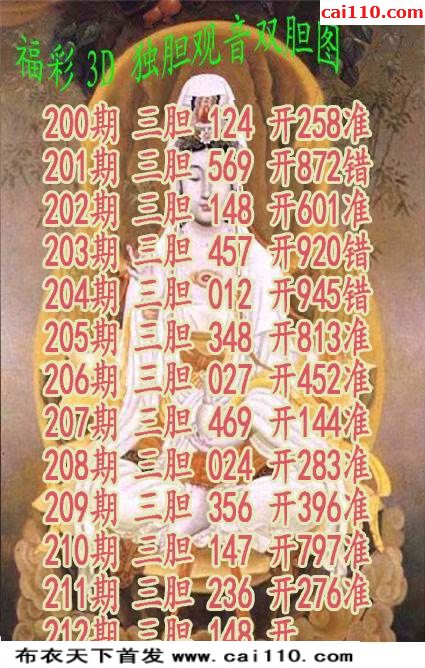 cai110.com
福彩 3D 独胆观音双胆图
200期 三胆 124 开258准
201期 三胆 569 开872错
202期 三胆 148 开601准
203期 三胆 457 开920错
204期 三胆 012 开945错
205期 三胆 348 开813准
206期 三胆 027 开452准
207期 三胆 469 开144准
208期 三胆 024 开283准
209期 三胆 356 开396准
210期 三胆 147 开797准
211期 三胆 236 开276准
212期 三胆 148 开
布衣天下首发 www.cai110.com